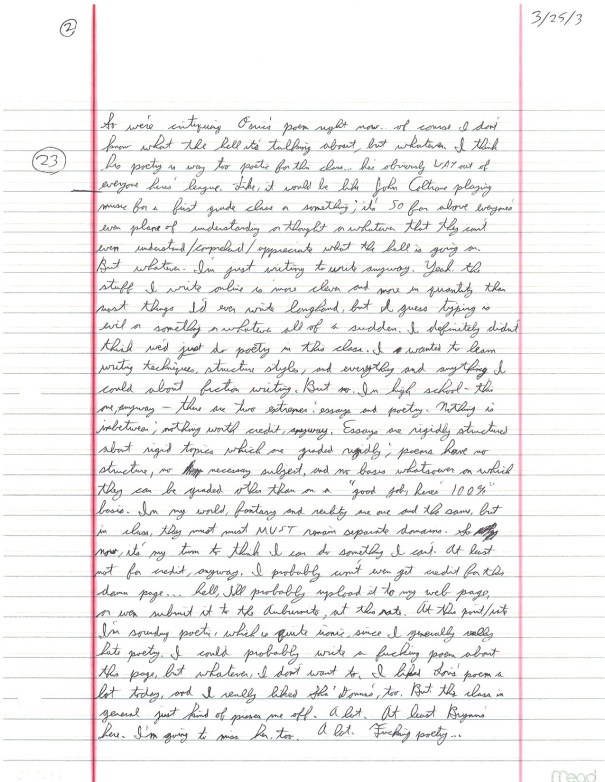 2
3/25/3
23
So we're critiquing Osric's poem right now... of course I don't
know what the hell it's talking about, but whatever. I think
his poetry is way too poetic for this class... he's obviously WAY out of
everyone here's league. Like, it would be like John Coltrane playing
music for a first grade class or something; it's SO far above everyone's
even plane of understanding or thought or whatever that they can't
even understand/comprehend/appreciate what the hell is going on.
But whatever. I'm just writing to write anyway. Yeah the
stuff I write online is more clever and more in quantity than
most things I'd ever write longhand, but I guess typing is
evil or something or whatever all of a sudden. I definitely didn't
think we'd just do poetry in this class. I wanted to learn
writing techniques, structure, style, and everything and anything I
could about fiction writing. But no. In high school - this
one, anyway - there are two extremes: essays and poetry. Nothing is
inbetween; nothing worth credit, anyway. Essays are rigidly structured
about rigid topics which are graded rigidly; poems have no
structure, no necessary subject, and no basis whatsoever on which
they can be graded other than on a "good job, here's 100%"
basis. In my world, fantasy and reality are one and the same, but
in class, they must must MUST remain separate domains. So
now, it's my turn to think I can do something I can't. At least
not for credit, anyway. I probably won't even get credit for this
damn page... hell, I'll probably upload it to my web page,
or even submit it to the at this rate. At this point/rate
I'm sounding poetic, which is quite ironic, since I generally really
hate poetry. I could probably write a fucking poem about
this page, but whatever, I don't want to. I liked poem a
lot today, and I really liked too. But this class in
general just kind of pisses me off. A lot. At least Brynn's
here. I'm going to miss her, too. A lot. Fucking poetry...
Mead